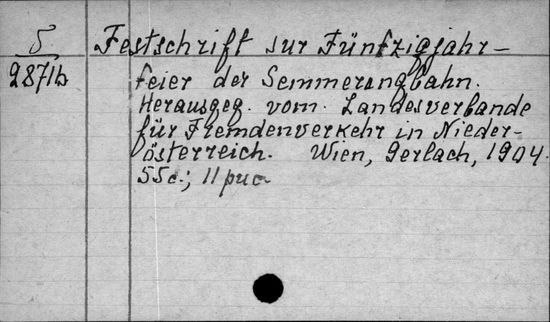 5 Festschrift zur Fünfzigjahr-
2871b feier der Semmeringbahn.
Herausgeg. vom. Landesverbande
für Fremdenverkehr in Nieder-
österreich. Wien, Gerlach, 1904.
55c.; 11 рис.